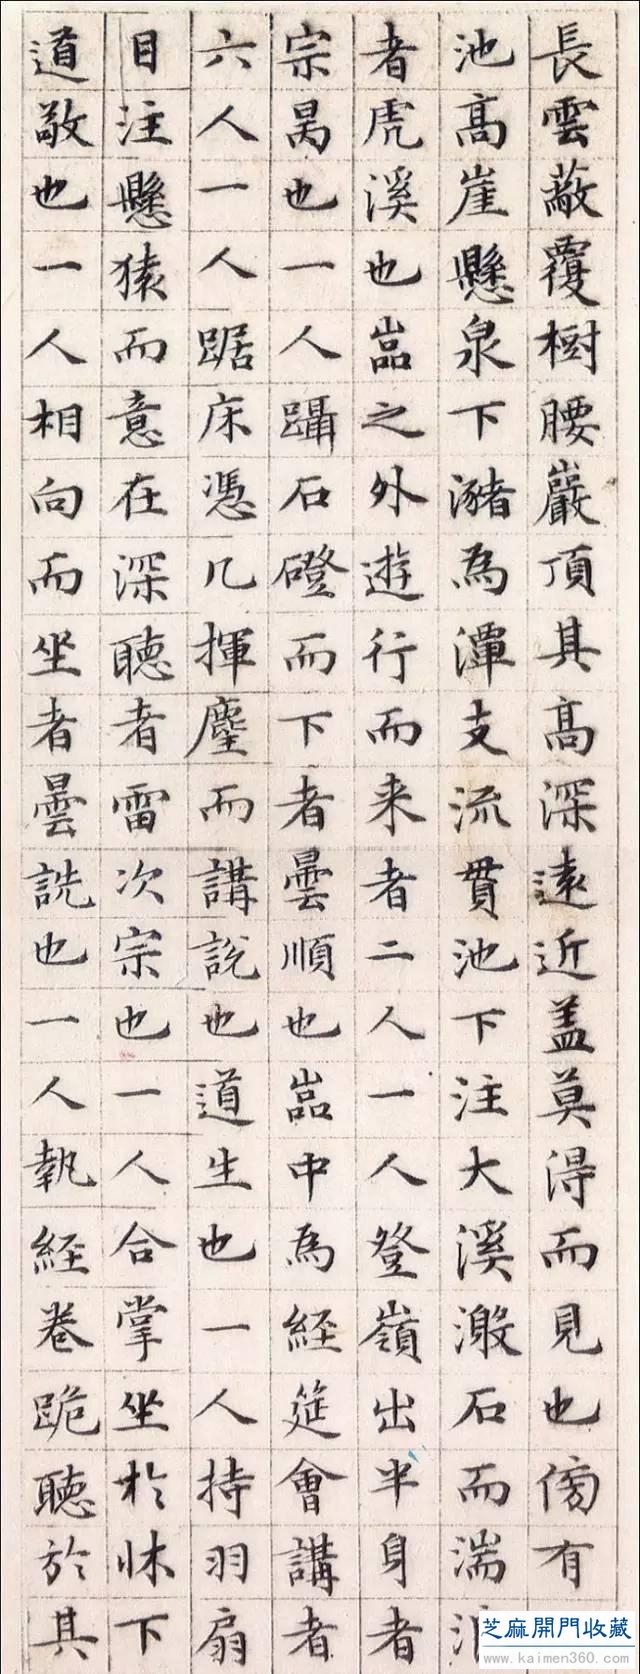 長雲蔽覆樹腰巖頂其髙深遠近盖莫得而見也傍有
池髙崖懸泉下瀦為潭支流貫池下注大溪激石而湍
者虎溪也嵓之外遊行而来者二人一人登嶺出半身者
宗昺也一人躡石磴而下者曇順也嵓中為經筵會講者
六人一人踞床憑几揮麈而講說也道生也一人持羽扇
目注懸猿而意在深聽者雷次宗也一人合掌坐於牀下
道敬也一人相向而坐者曇詵也一人執經卷跪聽於其
芝麻開門收藏
www.kaimen360.com